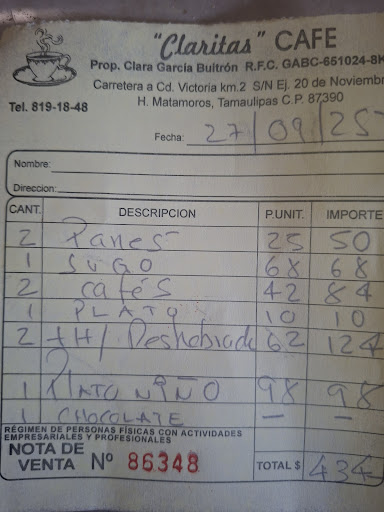 "Claritas" CAFE
Prop. Clara García Buitrón R.F.C. GABC-651024-8K
Carretera a Cd. Victoria km.2 S/N Ej. 20 de Noviembr
Tel. 819-18-48 H. Matamoros, Tamaulipas C.P. 87390
Fecha: 27/09/25
Nombre:
Direccion:
CANT. DESCRIPCION P.UNIT. IMPORTE
2 Panes 25 50
1 JUGO 68 68
2 cafés 42 84
1 PLATO 10 10
2 +H/Deshebrada 62 124
1 Plato niño 98 98
1 CHOCOLATE — —
RÉGIMEN DE PERSONAS FÍSICAS CON ACTIVIDADES
EMPRESARIALES Y PROFESIONALES
NOTA DE
VENTA Nº 86348 TOTAL $ 434